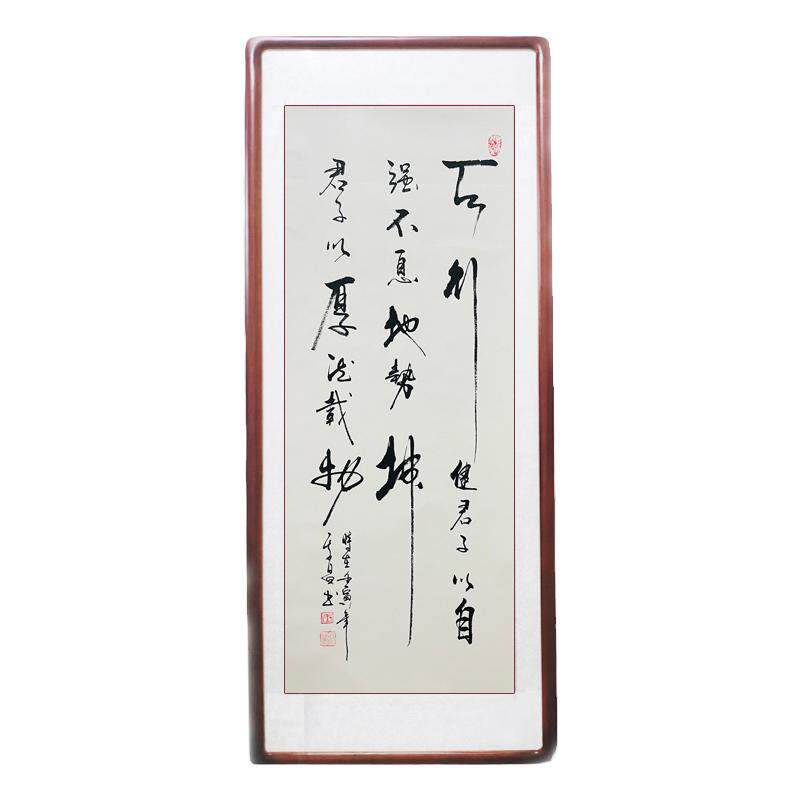 天行健君子以自
强不息地勢坤
君子以厚德載物
時在壬寅年
书